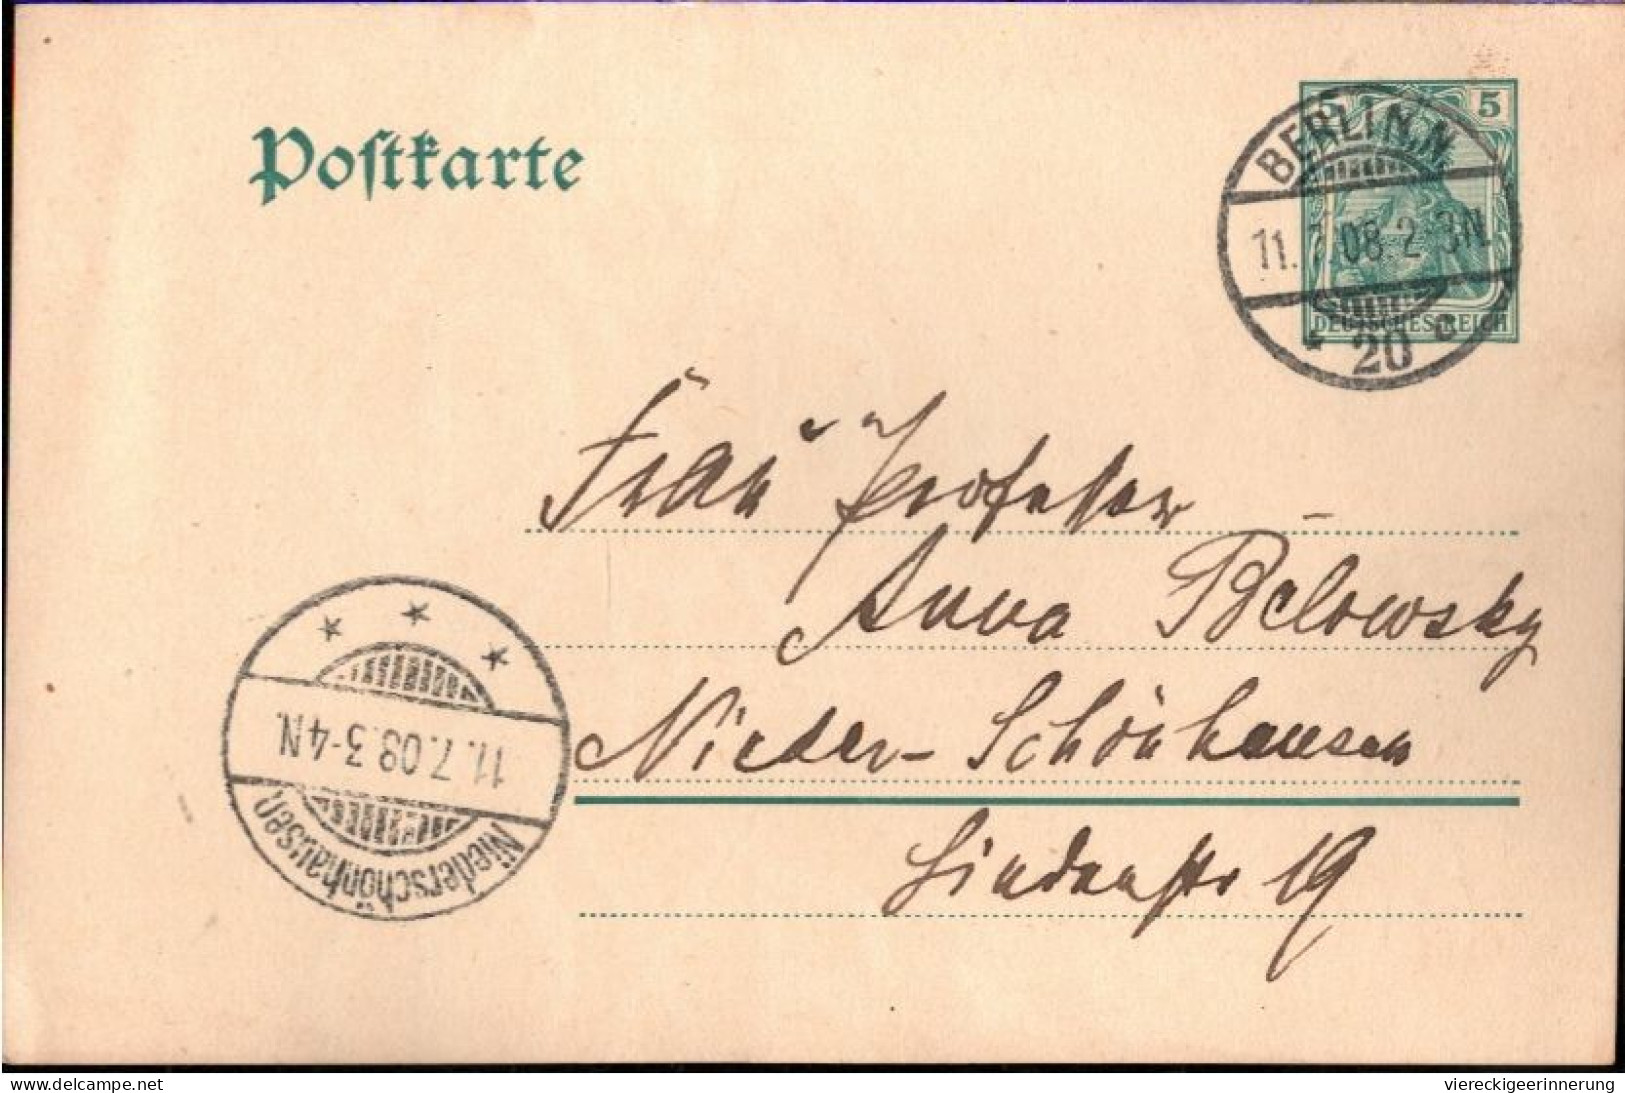 Postkarte
5 5
BERLIN.N.
11.7.08.2-3N.
* 20 c
DEUTSCHES REICH
Frau Professor
Anna Belowsky
Nieder-Schönhausen
Lindenstr 19
Niederschönhausen
11.7.08.3-4N.
* * *
www.delcampe.net
viereckigeerinnerung